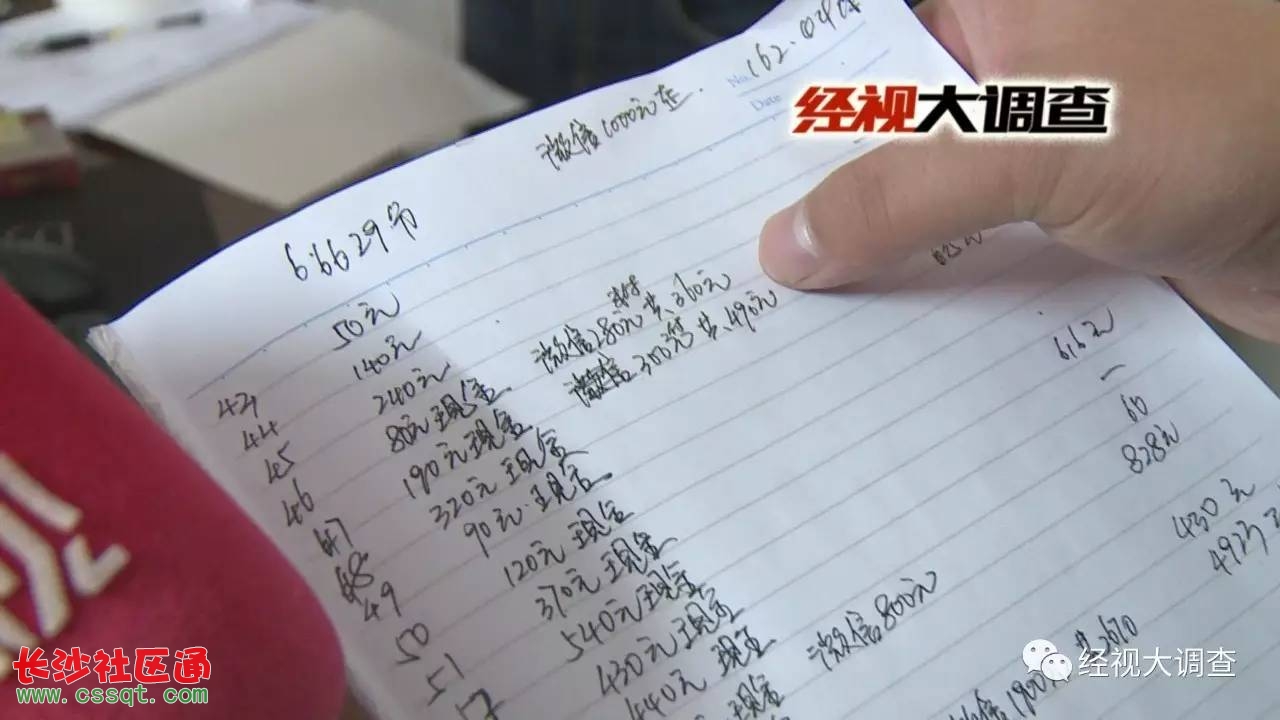 162.
No.
Date
经视大调查
微信1000元在.
6.6629节
50元
43 140元
44 240元
45 80元现金
46 190元现金
47 320元现金
48 90元.现金
49 120元现金
50 370元现金
51 540元现金
430元现金
440元现金
微信280元 共360元
微信300元 共490元
616元
60
828元
430元
微信800元
共2670
经视大调查
长沙社区通
www.cssqt.com